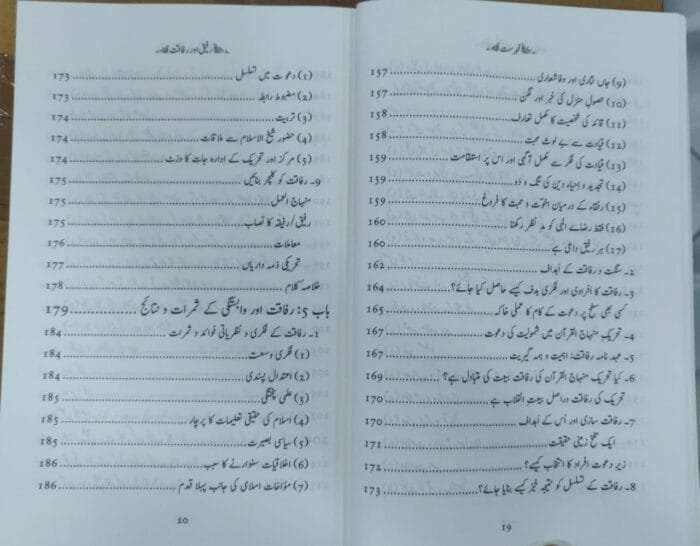 فہرست
(9) جاں نثاری اور وفاشعاری ........ 157
(10) حصولِ منزل کی خبر اور لگن ........ 157
(11) قائد کی شخصیت کا مکمل تعارف ........ 158
(12) قیادت سے بے لوث محبت ........ 158
(13) قیادت کی فکر سے مکمل آگہی اور اس پر استقامت ........ 159
(14) تجدید و اِحیاء دین کی تگ و دَو ........ 159
(15) رفقاء کے درمیان اخوّت و محبت کا فروغ ........ 159
(16) فقط رضاے الٰہی کو مدِ نظر رکھنا ........ 160
(17) ہر رفیق داعی ہے ........ 160
2۔ سنگت و رفاقت کے اَہداف ........ 162
3۔ رفاقت کا اِنفرادی اور فکری ہدف کیسے حاصل کیا جائے؟ ........ 164
کسی بھی سطح پر دعوت کے کام کا عملی خاکہ ........ 165
4۔ تحریک منہاج القرآن میں شمولیت کی دعوت ........ 167
5۔ عہد نامہ رفاقت: اہمیت و ہمہ گیریت ........ 167
6۔ کیا تحریک منہاج القرآن کی رفاقت بیعت کی متبادل ہے؟ ........ 169
تحریک کی رفاقت دراصل بیعتِ انقلاب ہے ........ 170
7۔ رفاقت سازی اور اُس کے اَہداف ........ 170
ایک تلخ زمینی حقیقت ........ 171
زیرِ دعوت افراد کا انتخاب کیسے؟ ........ 172
8۔ رفاقت کے تسلسل کو نتیجہ خیز کیسے بنایا جائے؟ ........ 173
19
رفیق اور رفاقت
(1) دعوت میں تسلسل ........ 173
(2) مضبوط رابطہ ........ 173
(3) تربیت ........ 174
(4) حضور شیخ الاسلام سے ملاقات ........ 174
(5) مرکز اور تحریک کے ادارہ جات کا وزٹ ........ 174
9۔ رفاقت کو کلچر بنائیں ........ 175
منہاج العمل ........ 175
رفیق/رفیقہ کا نصاب ........ 175
معاملات ........ 176
تحریکی ذمہ داریاں ........ 177
خلاصہ کلام ........ 178
باب 5: رفاقت اور وابستگی کے ثمرات و نتائج ........ 179
1۔ رفاقت کے فکری و نظریاتی فوائد و ثمرات ........ 184
(1) فکری وسعت ........ 184
(2) اعتدال پسندی ........ 184
(3) علمی پختگی ........ 185
(4) اسلام کی حقیقی تعلیمات کا پرچار ........ 185
(5) سیاسی بصیرت ........ 185
(6) اخلاقیات سنوارنے کا سبب ........ 186
(7) مؤاخات اسلامی کی جانب پہلا قدم ........ 186
20